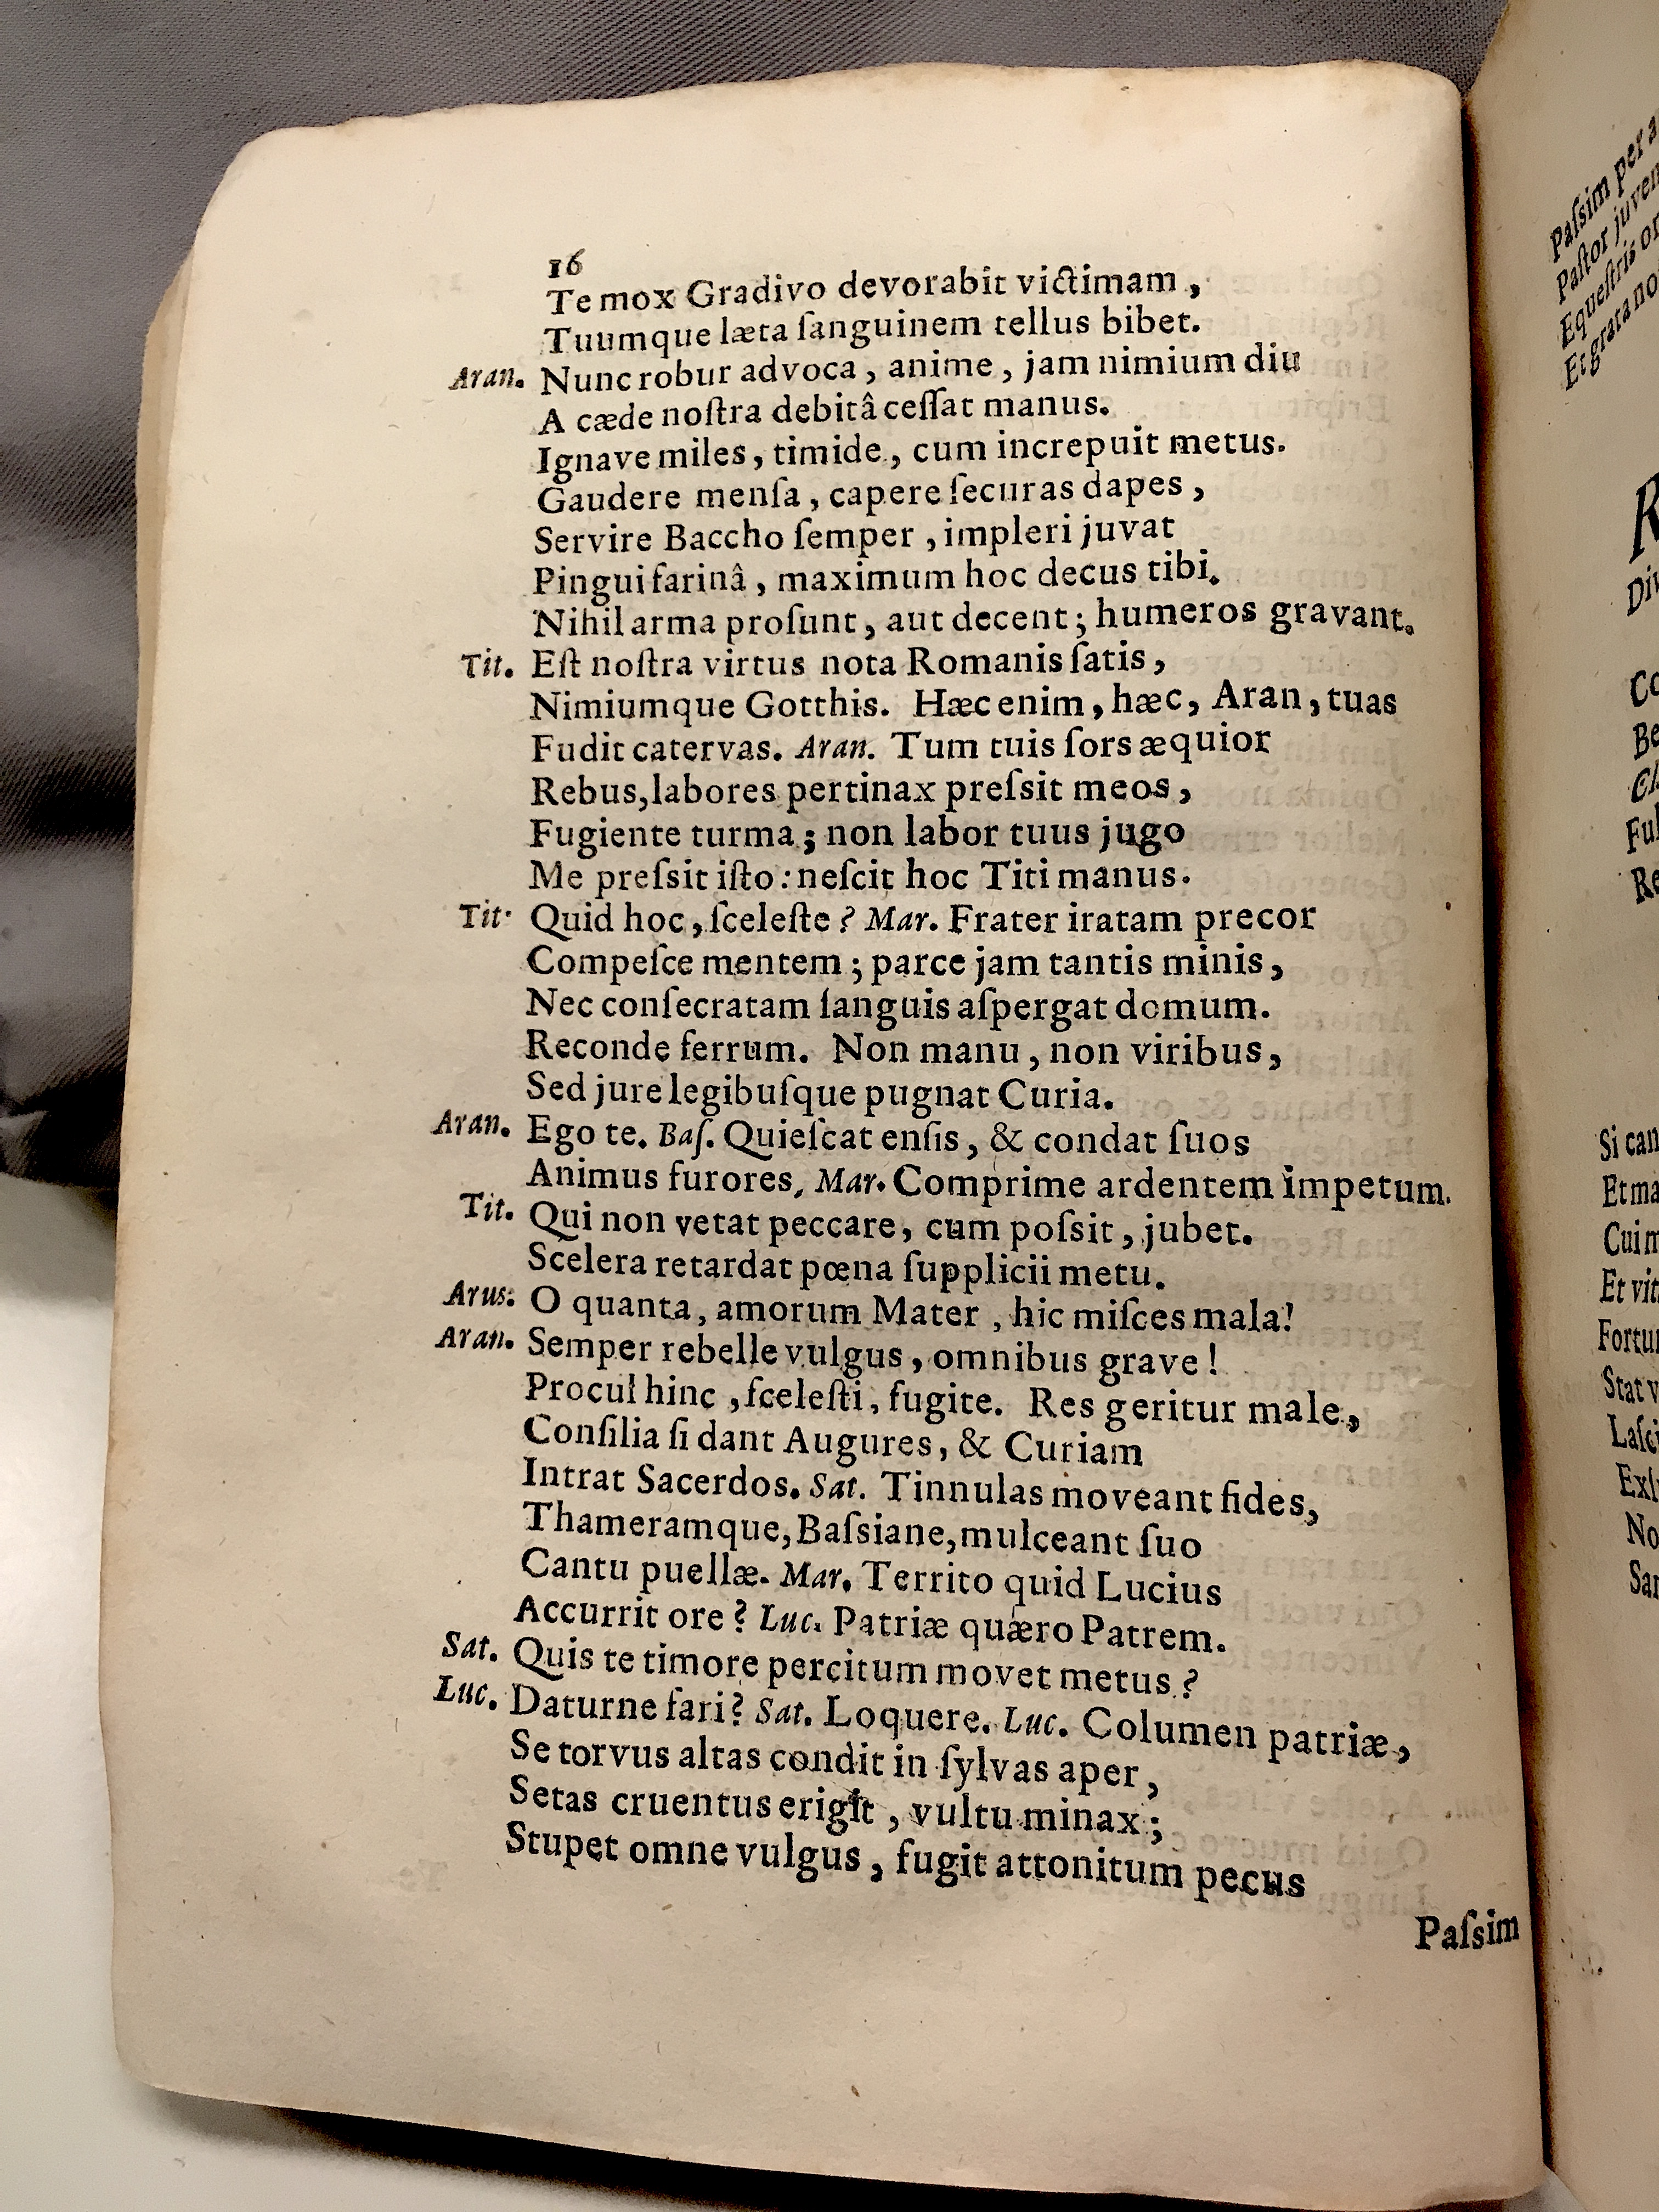 16
Te mox Gradivo devorabit victimam,
Tuumque læta ſanguinem tellus bibet.
Aran. Nunc robur advoca, anime, jam nimium diu
A cæde noſtra debitâ ceſſat manus.
Ignave miles, timide, cum increpuit metus.
Gaudere menſa, capere ſecuras dapes,
Servire Baccho ſemper, impleri juvat
Pingui farinâ, maximum hoc decus tibi.
Nihil arma proſunt, aut decent; humeros gravant.
Tit. Eſt noſtra virtus nota Romanis ſatis,
Nimiumque Gotthis. Hæc enim, hæc, Aran, tuas
Fudit catervas. Aran. Tum tuis ſors æquior
Rebus, labores pertinax preſsit meos,
Fugiente turma; non labor tuus jugo
Me preſsit iſto: neſcit hoc Titi manus.
Tit. Quid hoc, ſceleſte? Mar. Frater iratam precor
Compeſce mentem; parce jam tantis minis,
Nec conſecratam ſanguis aſpergat domum.
Reconde ferrum. Non manu, non viribus,
Sed jure legibuſque pugnat Curia.
Aran. Ego te. Baſ. Quieſcat enſis, & condat ſuos
Animus furores, Mar. Comprime ardentem impetum.
Tit. Qui non vetat peccare, cum poſsit, jubet.
Scelera retardat pœna ſupplicii metu.
Arus: O quanta, amorum Mater, hic miſces mala!
Aran. Semper rebelle vulgus, omnibus grave!
Procul hinc, ſceleſti, fugite. Res geritur male,
Conſilia ſi dant Augures, & Curiam
Intrat Sacerdos. Sat. Tinnulas moveant fides,
Thameramque, Baſsiane, mulceant ſuo
Cantu puellæ. Mar. Territo quid Lucius
Accurrit ore? Luc. Patriæ quæro Patrem.
Sat. Quis te timore percitum movet metus?
Luc. Daturne fari? Sat. Loquere. Luc. Columen patriæ,
Se torvus altas condit in ſylvas aper,
Setas cruentus erigit, vultu minax;
Stupet omne vulgus, fugit attonitum pecus
Paſsim
Paſsim per
Paſtor juven
Equeſtris or
Et grata no
R
Div
Co
Be
Ful
Re
Si can
Et ma
Cui m
Et vit
Fortu
Stat v
Laſci
Exſ
No
San